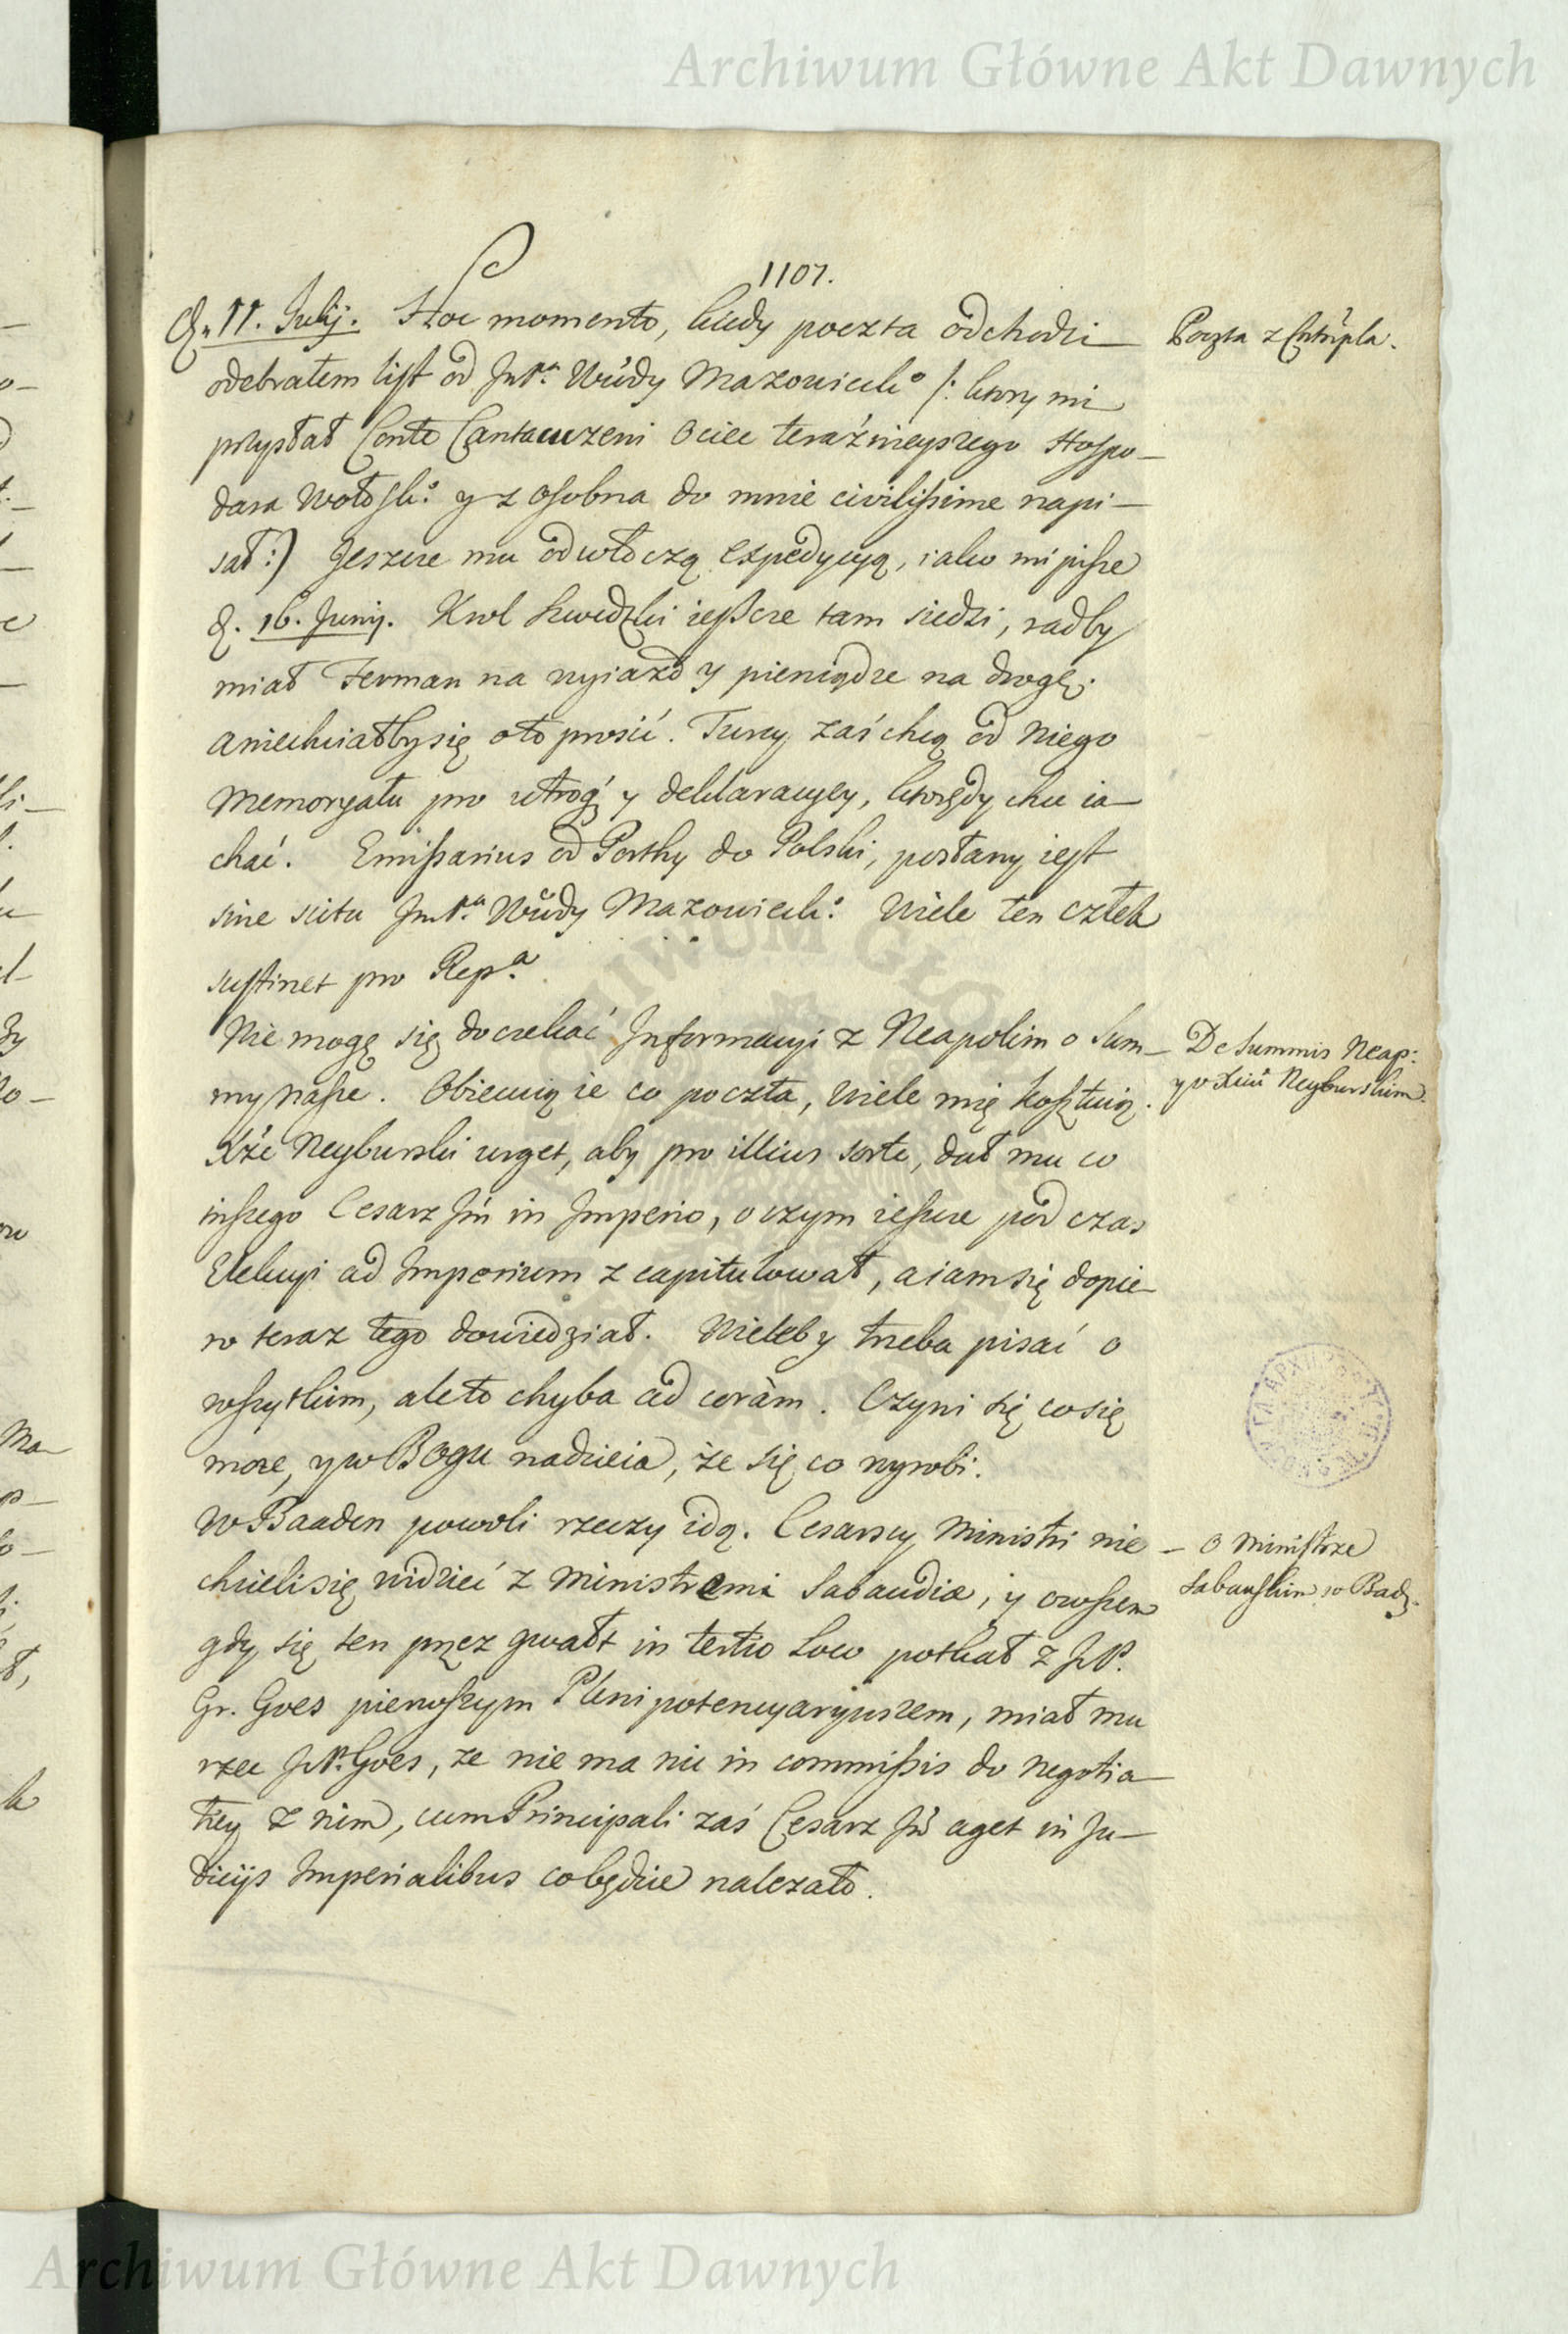 Archiwum Główne Akt Dawnych
1107.
D. 11. Julij. Hoc momento, kiedy poczta odchodzi
Poczta z Cntnpla.
odebrałem list od JmP.ᵃ Wdy Mazowieck.º /: ktory mi
przysłał Conte Cantacuzeni Ociec teraźnieyszego Hospo-
dara Wołosk.º y z osobna do mnie civilissime napi-
sał :) Jeszcze mu odwłoczą Expedycyą, iako mi pisze
d. 16. Junij. Krol Szwedzki ieszcze tam siedzi, radby
miał Ferman na wyiazd y pieniądze na drogę.
a niechciałby się oto prosić. Turcy zaś chcą od niego
Memoryału pro utroq; y deklaracyey, ktorędy chce ia-
chać. Emissarius od Porthy do Polski, posłany iest
sine scitu JmP.ᵃ Wdy Mazowieck.º Wiele ten człek
sustinet pro Rep.ᵃ
Nie mogę się doczekać Informacyi z Neapolim o Sum-
De Summis Neap:
my nasze. Obiecuią ie co poczta, wiele mię kosztuią.
y o Xciu Neyburskim.
Xże Neyburski urget, aby pro illius sorte, dał mu co
inszego Cesarz Jm in Imperio, o czym ieszcze pod czas
Elekcyi ad Imperium z capitulował, a iam się dopie-
ro teraz tego dowiedział. Wieleby trzeba pisać o
wszytkim, ale to chyba ad coràm. Czyni się co się
może, y w Bogu nadzieia, że się co wyrobi.
W Baaden powoli rzeczy idą. Cesarscy Ministri nie
- O Ministrze
chcieli się widzieć z Ministrami Sabaudiæ, y owszem
Sabauskim w Bad.
gdy się ten przez gwałt in tertio Loco potkał z JP.
Gr. Goes pierwszym Plenipotencyaryuszem, miał mu
rzec JP. Goes, że nie ma nic in commissis do negotia-
tiey z nim, cum Principali zaś Cesarz Jm aget in Ju-
dicijs Imperialibus co będzie należało.
Archiwum Główne Akt Dawnych